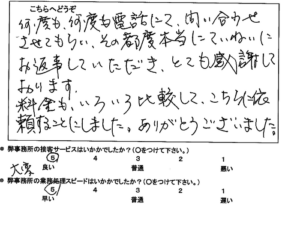 こちらへどうぞ
何度も、何度も電話にて、問い合わせ
させてもらい、その都度本当にていねいに
お返事していただき、とても感謝して
おります。
料金も、いろいろ比較して、こちらに依
頼することにしました。ありがとうございました。
* 弊事務所の接客サービスはいかがでしたか？(○をつけて下さい。)
5 4 3 2 1
大変良い 普通 悪い
* 弊事務所の業務処理スピードはいかがでしたか？(○をつけて下さい。)
5 4 3 2 1
早い 普通 遅い